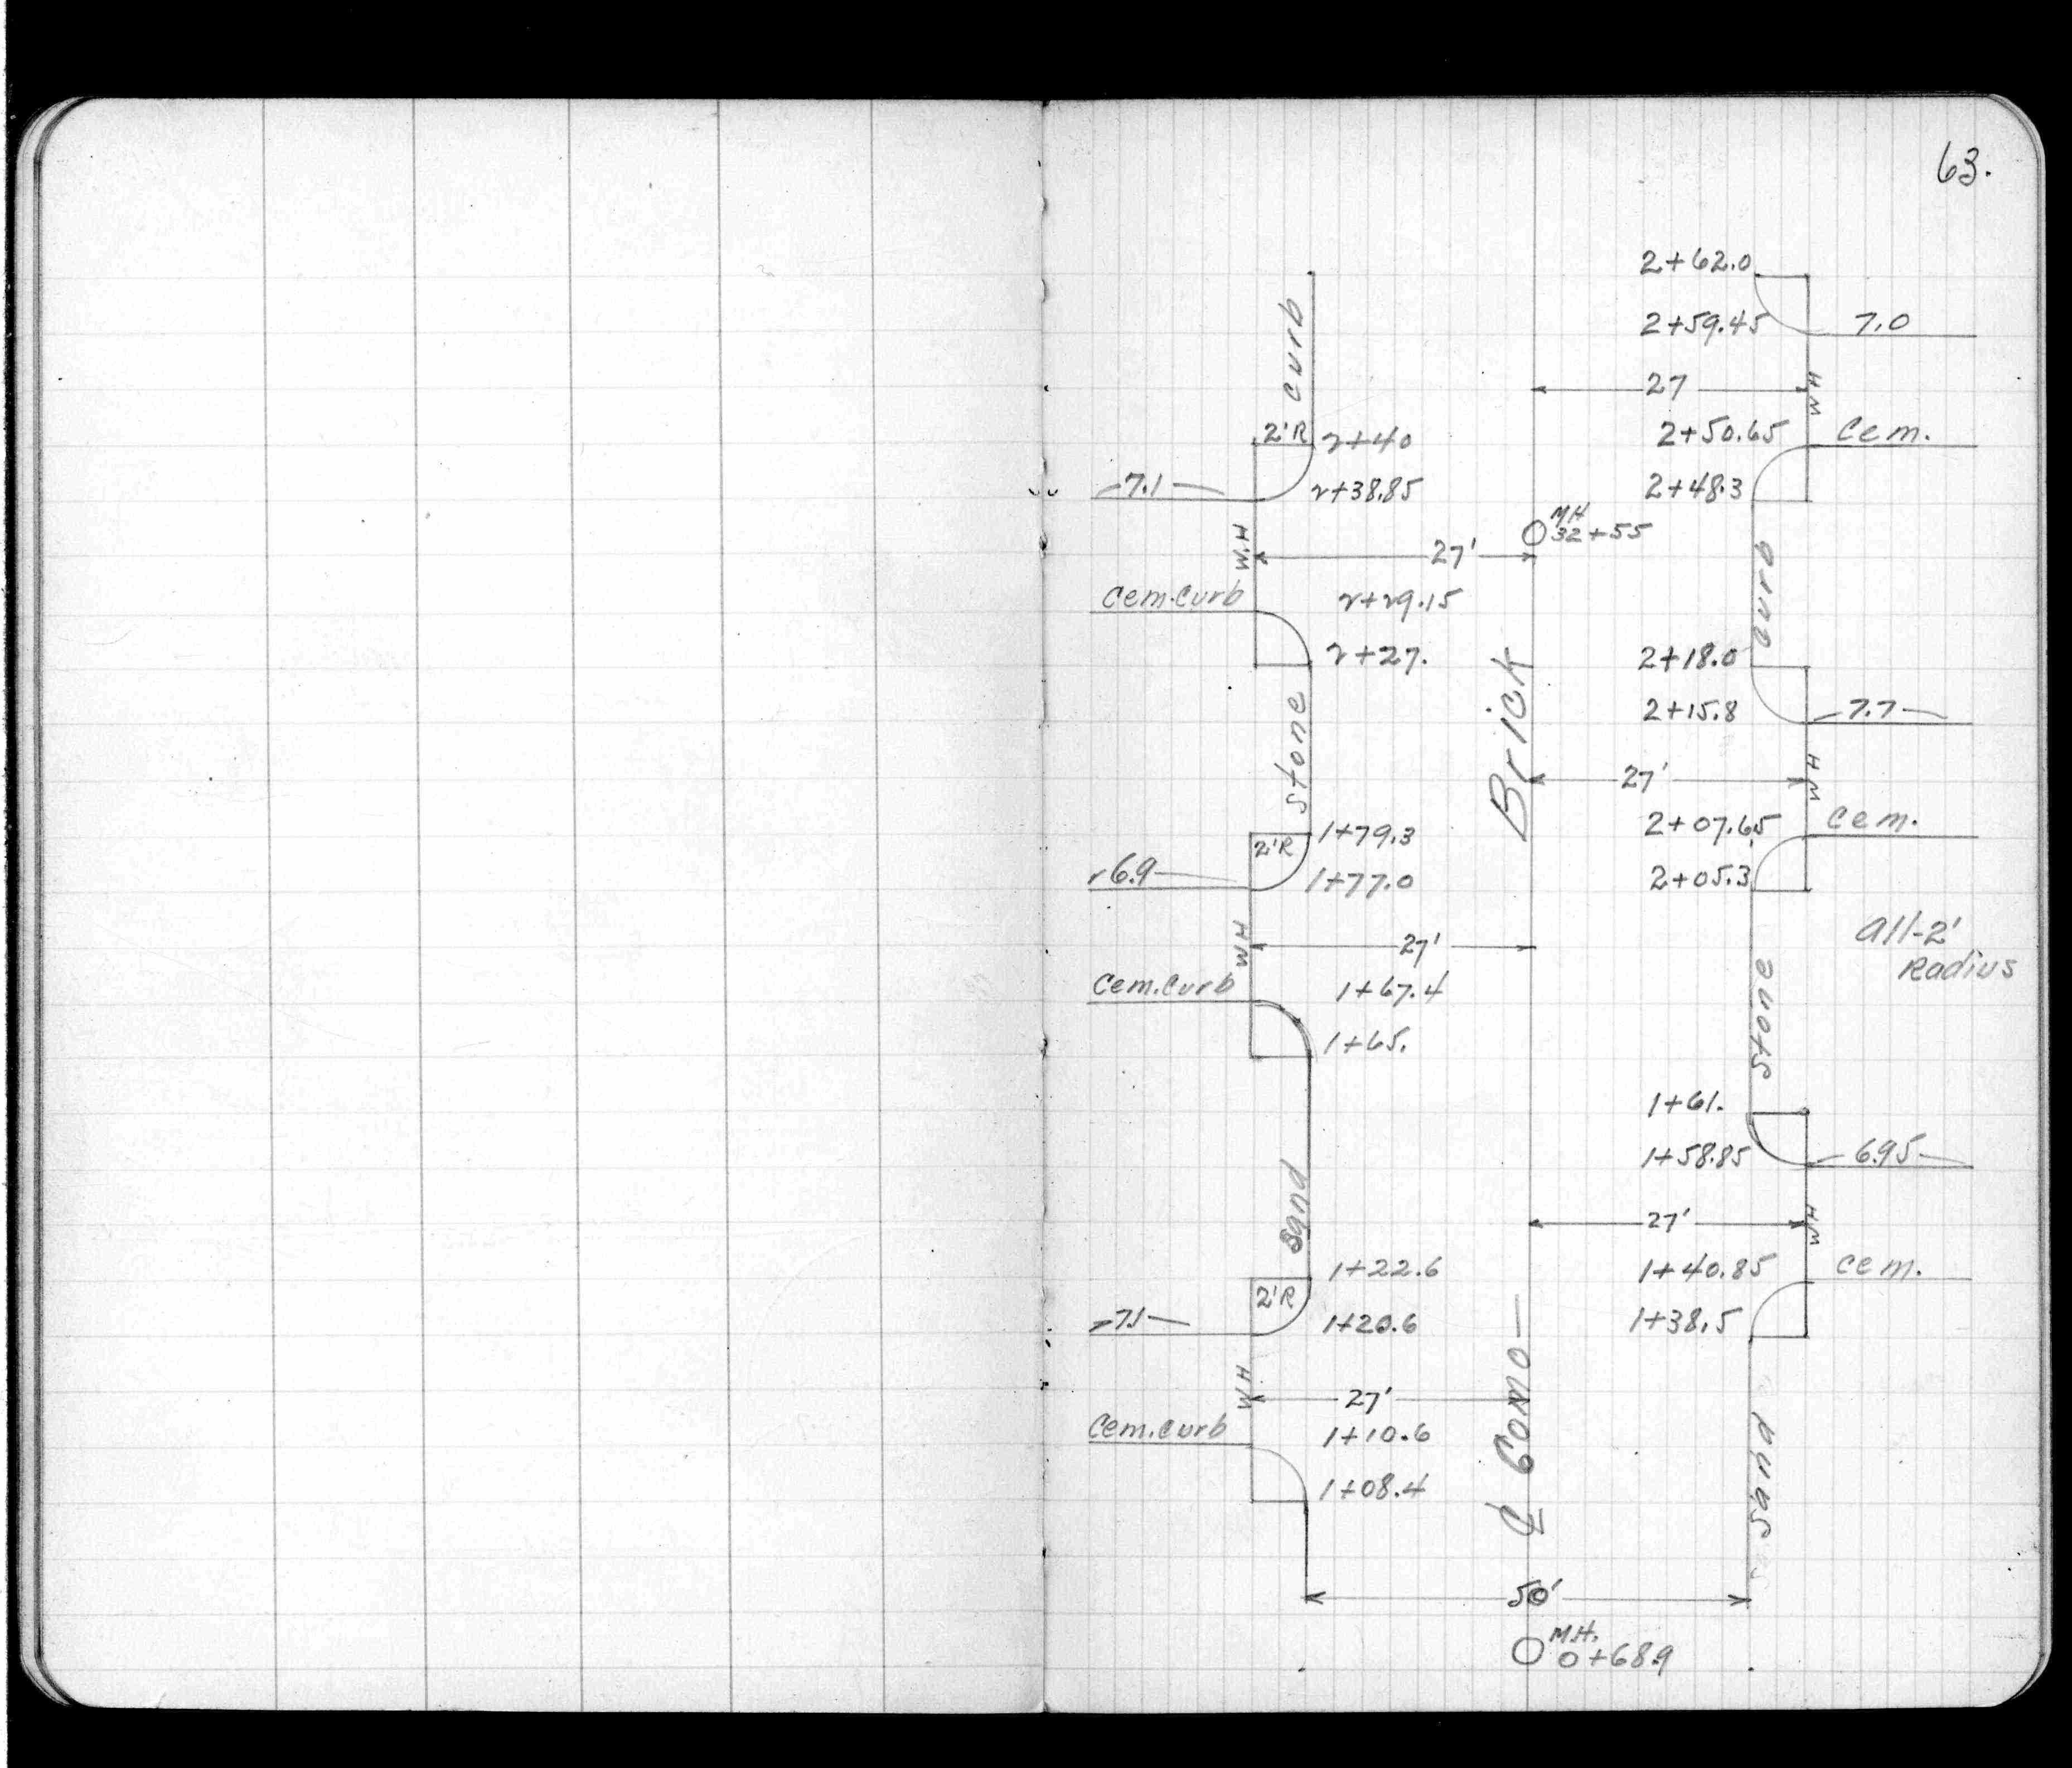 63.
2+62.0
curb
2+59.45
7.0
27
W H
2'R
2+40
2+50.65
Cem.
7.1
2+38.85
2+48.3
MH
32+55
W.H
27'
curb
Cem.Curb
2+29.15
2+27.
2+18.0
Brick
2+15.8
7.7
stone
27'
W H
1+79.3
2+07.65
Cem.
2'R
6.9
1+77.0
2+05.3
W H
27'
All-2'
Radius
Cem.Curb
1+67.4
stone
1+65.
1+61.
1+58.85
6.95
sand
27'
W H
1+22.6
1+40.85
Cem.
2'R
7.1
1+20.6
1+38.5
W H
27'
℄ Como
Cem.curb
1+10.6
sand
1+08.4
50'
M.H.
0+68.9